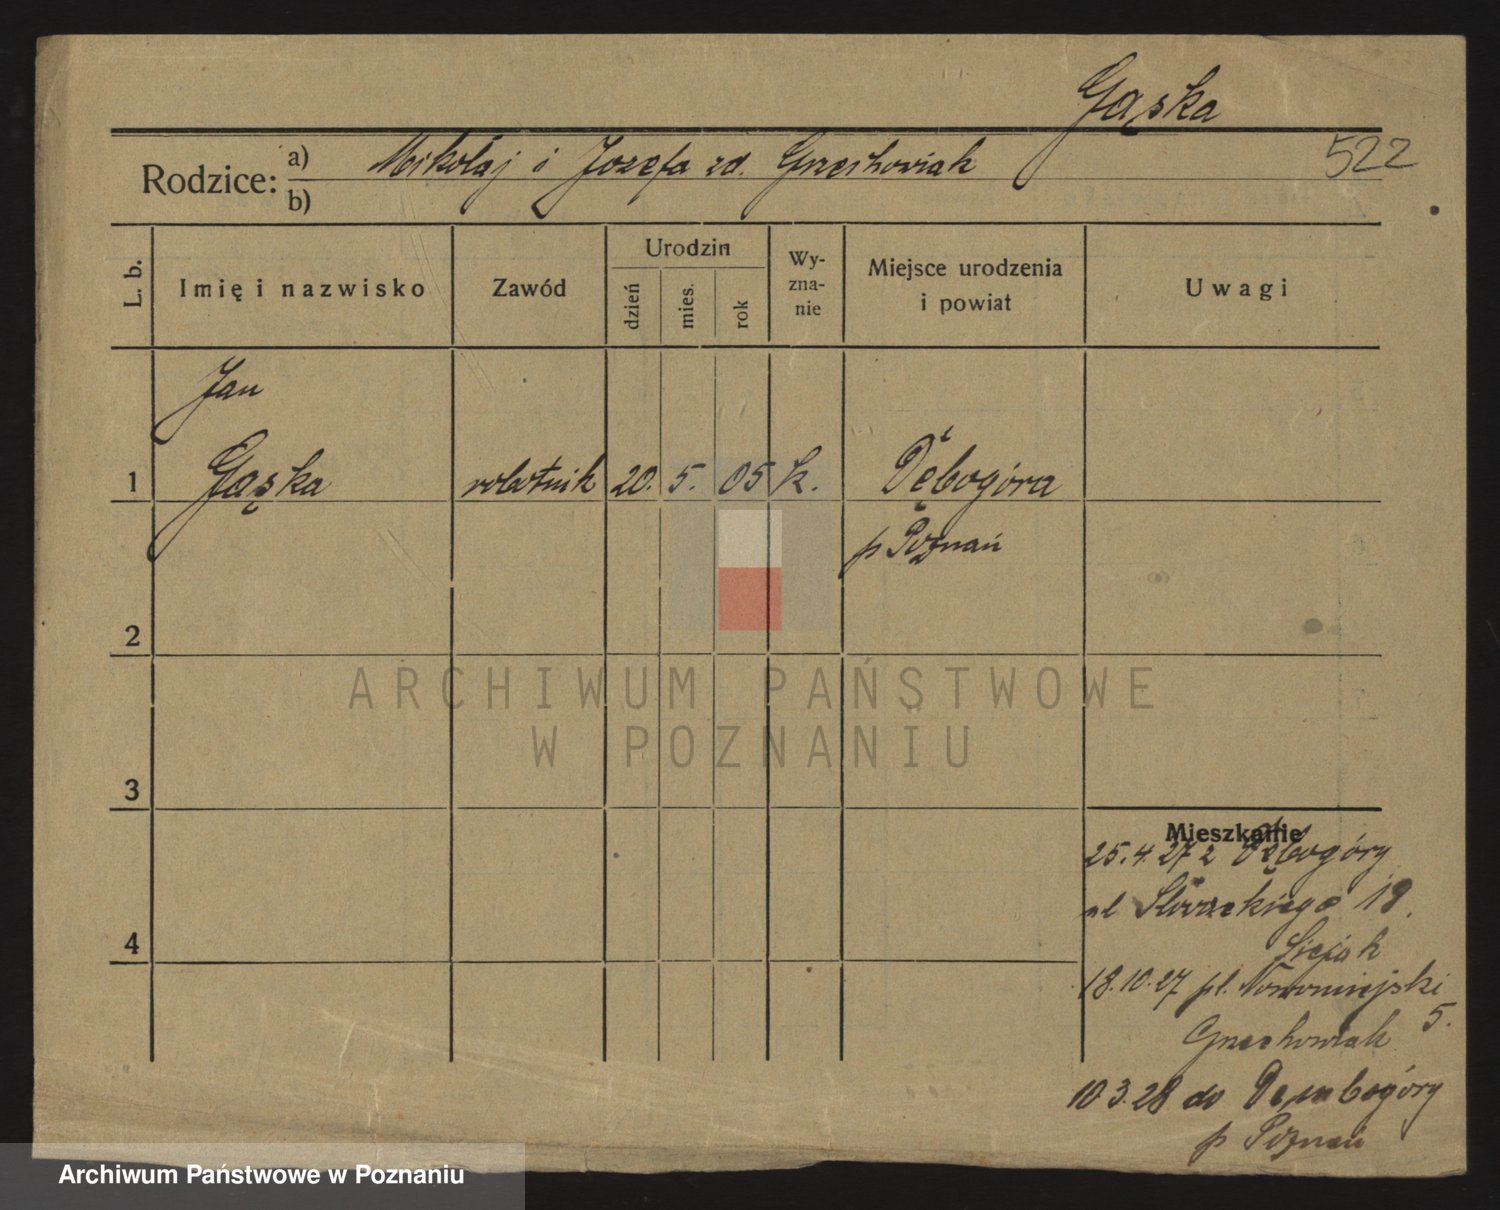 Gąska
522
Rodzice: a) Mikołaj i Jozefa zd. Grzechowiak
b)
L. b.
Imię i nazwisko
Zawód
Urodzin
dzień
mies.
rok
Wy-
zna-
nie
Miejsce urodzenia
i powiat
Uwagi
Jan
1 Gąska robotnik 20. 5. 05 k. Dębogóra
p Poznań
2
3
4
Mieszkanie
25.4.27 z Dębogóry
ul Słowackiego 19.
18.10.27 pl. Nowomiejski
5.
Grzechowiak
10 3.28 do Dembogóry
p Poznań
ARCHIWUM PAŃSTWOWE
W POZNANIU
Archiwum Państwowe w Poznaniu